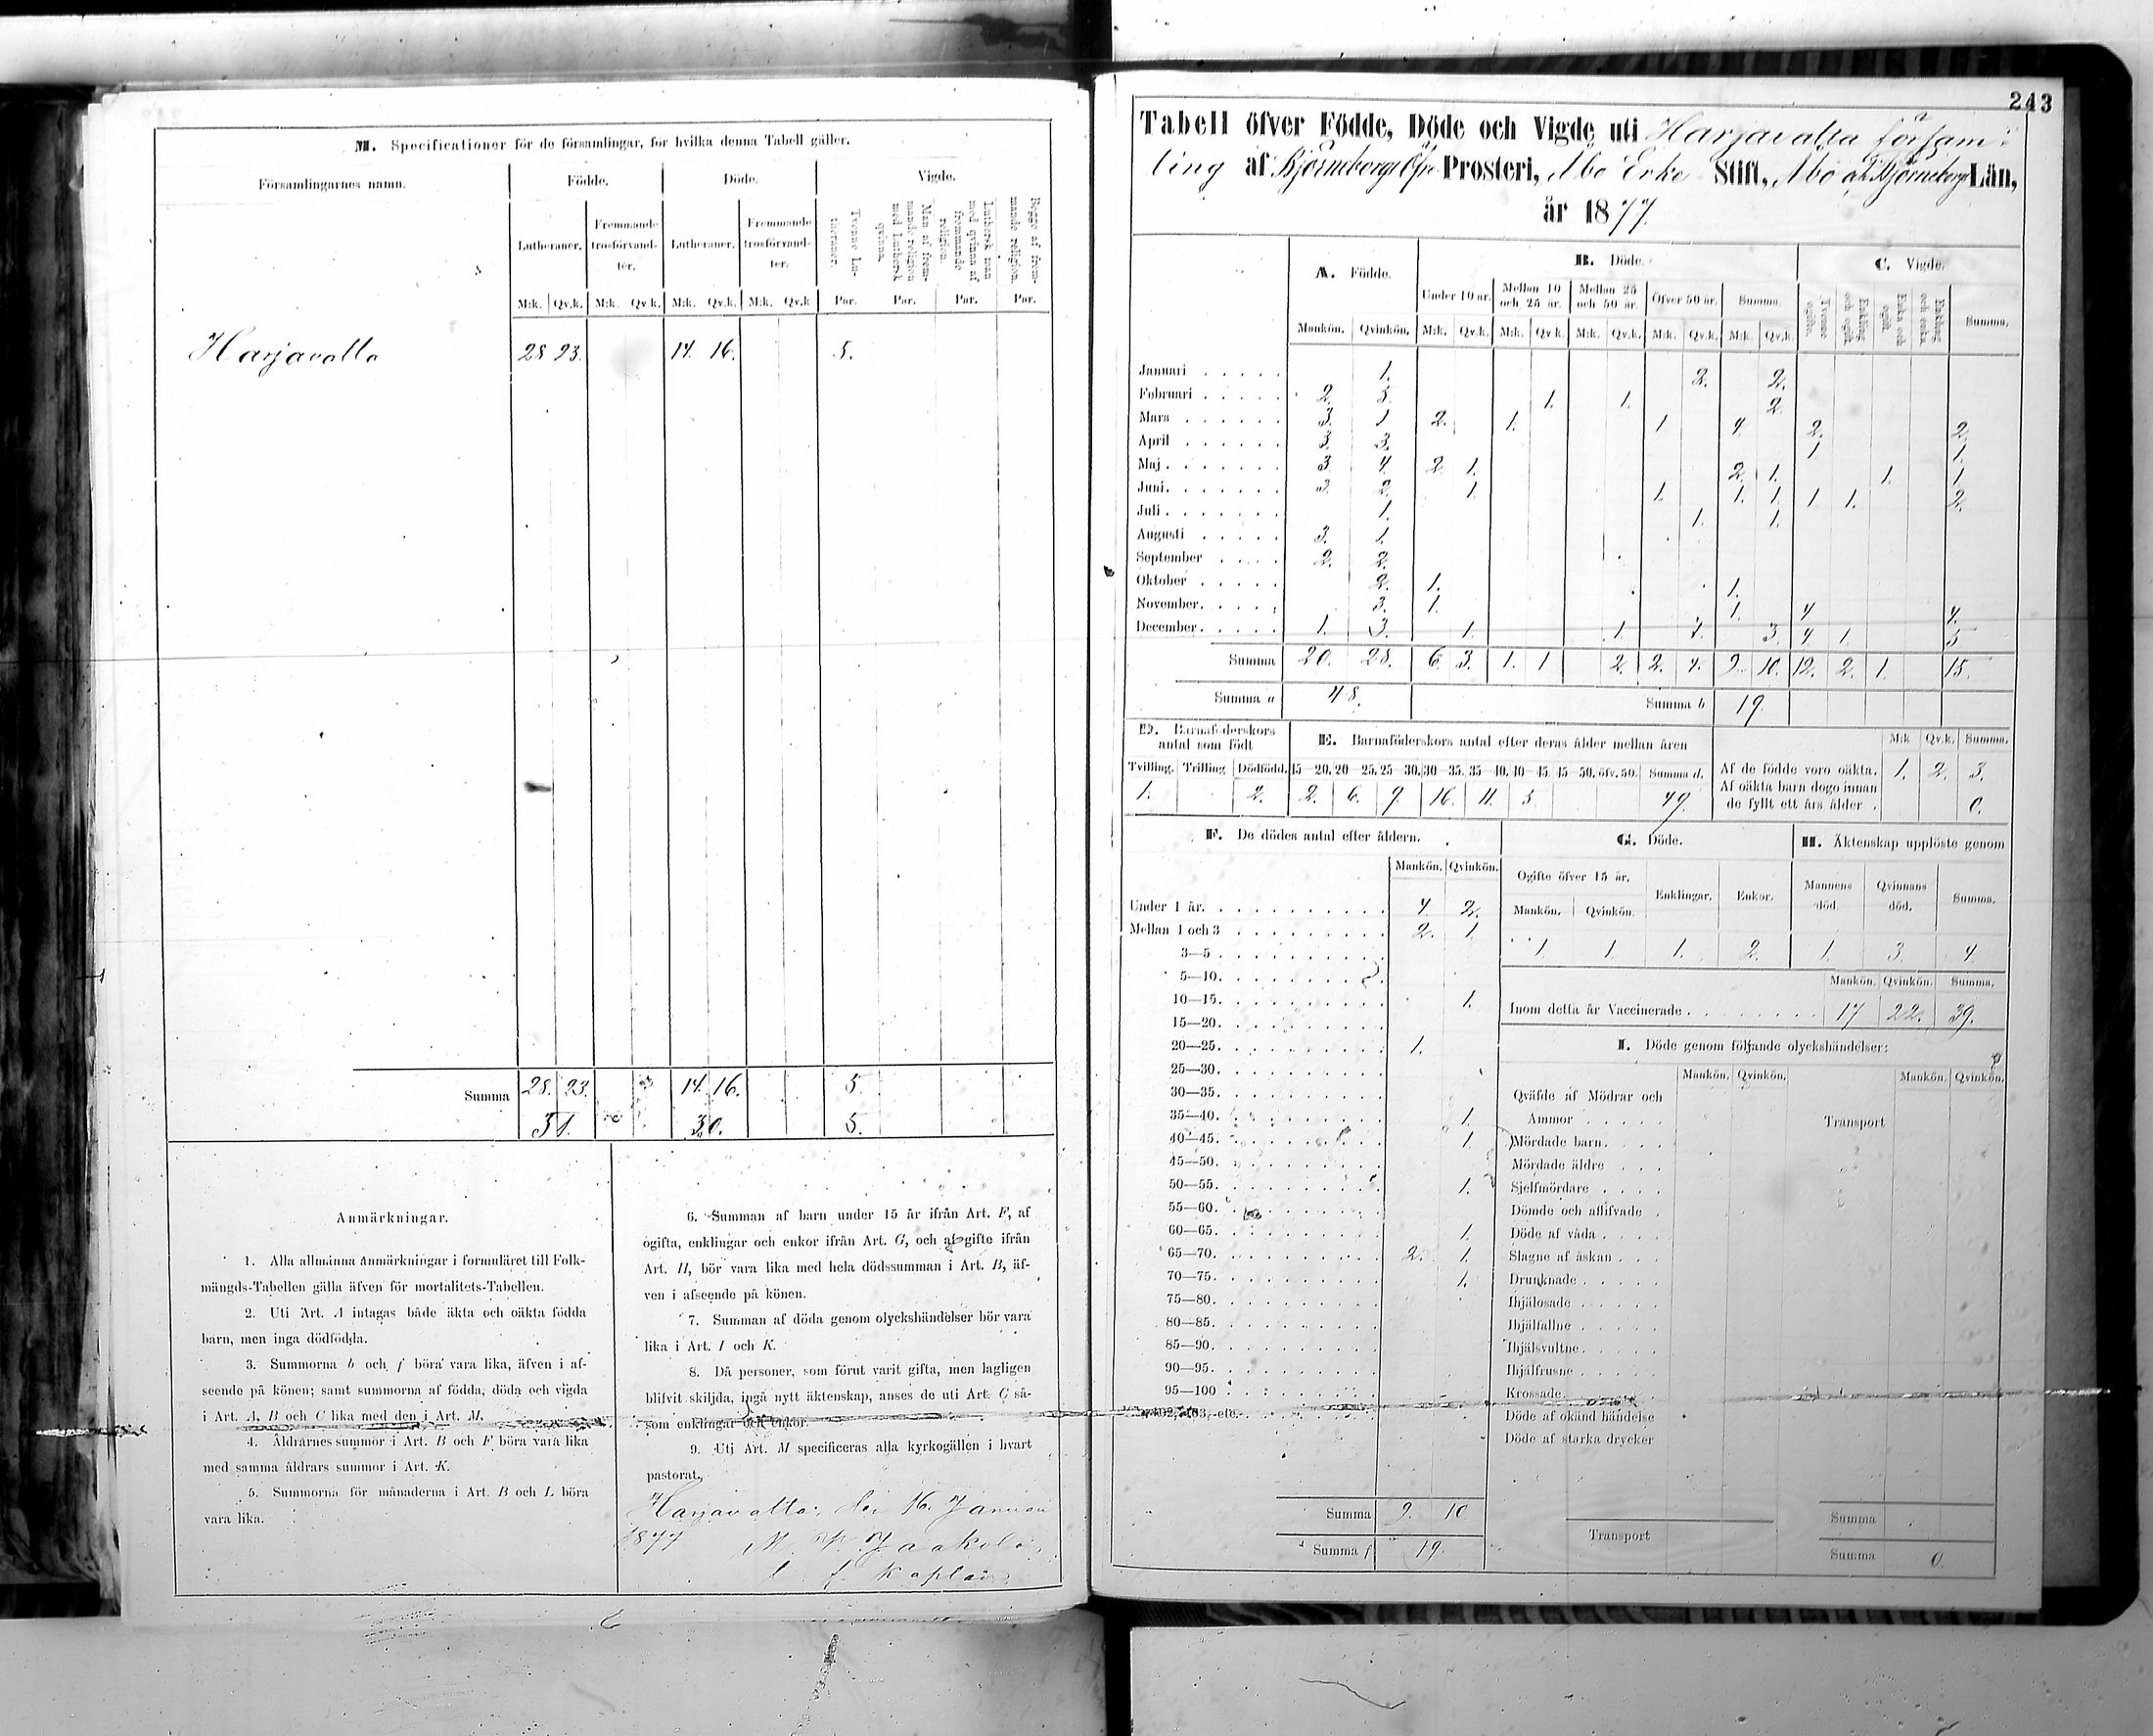 M. Specificationer för de församlingar, för hvilka denna Tabell gäller.
Församlingarnes namn. Födde. Döde. Vigde.
Lutheraner. Fremmande trosförvandter. Lutheraner. Fremmande trosförvandter. Tvenne Lutheraner. Man af fremmande religion med Luthersk qvinna. Luthersk man med qvinna af fremmande religion. Begge af fremmande religion.
M:k. Qv.k. M:k. Qv.k. M:k. Qv.k. M:k. Qv.k Par. Par. Par. Par.
Harjavalta 28 23. 14. 16. 5.
Summa 28. 23. 14. 16. 5.
51. 30. 5.
Anmärkningar.
1. Alla allmänna Anmärkningar i formuläret till Folk-
mängds-Tabellen gälla äfven för mortalitets-Tabellen.
2. Uti Art. A intagas både äkta och oäkta födda
barn, men inga dödfödda.
3. Summorna b och f böra vara lika, äfven i af-
seende på könen; samt summorna af födda, döda och vigda
i Art. A, B och C lika med den i Art. M.
4. Åldrarnes summor i Art. B och F böra vara lika
med samma åldrars summor i Art. K.
5. Summorna för månaderna i Art. B och L böra
vara lika.
6. Summan af barn under 15 år ifrån Art. F, af
ogifta, enklingar och enkor ifrån Art. G, och af gifte ifrån
Art. H, bör vara lika med hela dödssumman i Art. B, äf-
ven i afseende på könen.
7. Summan af döda genom olyckshändelser bör vara
lika i Art. I och K.
8. Då personer, som förut varit gifta, men lagligen
blifvit skiljda, ingå nytt äktenskap, anses de uti Art. C så-
som enklingar och enkor.
9. Uti Art. M specificeras alla kyrkogällen i hvart
pastorat.
Harjavalta, den 16. Januari
1877 M. Jaakola,
kaplan
243
Tabell öfver Födde, Döde och Vigde uti Harjavalta försam-
ling af Björneborgs Öfre Prosteri, Åbo Erke Stift, Åbo och Björneborgs Län,
år 1877.
A. Födde. B. Döde. C. Vigde.
Under 10 år. Mellan 10 och 25 år. Mellan 25 och 50 år. Öfver 50 år. Summa. Tvenne ogifte. Enkling och ogift. Enka och ogift. Enkling och enka. Summa.
Mankön. Qvinkön. M:k. Qv.k. M:k. Qv.k. M:k. Qv.k. M:k. Qv.k. M:k. Qv.k.
Januari 1. 2. 2.
Februari 2 1. 1. 2.
Mars 1 2. 1. 1 4. 2. 2.
April 1 1.
Maj 3 4. 2 1. 2. 1. 1. 1
Juni 1. 1. 1. 1. 1 1. 2.
Juli 1. 1. 1.
Augusti 3. 1
September 2. 2
Oktober 2. 1. 1.
November 3. 1. 1. 4 4.
December 1. 3. 1. 1. 3. 4 1. 5
Summa 20. 28. 6. 3. 1. 1 2. 2. 4. 9. 10. 12. 2. 1. 15.
Summa a 48. Summa b 19
D. Barnaföderskors antal som födt E. Barnaföderskors antal efter deras ålder mellan åren M:k Qv.k. Summa.
Tvilling. Trilling Dödfödd. 15—20. 20—25. 25—30. 30—35. 35—40. 40—45. 45—50. öfv. 50. Summa d.
1. 2. 2. 6. 9. 16. 11. 5 49.
Af de födde voro oäkta. 1. 2. 3.
Af oäkta barn dogo innan
de fyllt ett års ålder 0.
F. De dödes antal efter åldern.
Mankön. Qvinkön.
Under 1 år. 4. 2.
Mellan 1 och 3 2. 1.
3—5
5—10.
10—15. 1.
15—20.
20—25. 1.
25—30.
30—35.
35—40. 1.
40—45. 1.
45—50.
50—55. 1.
55—60.
60—65. 1.
65—70. 2. 1.
70—75. 1.
75—80.
80—85.
85—90.
90—95.
95—100
102, 103, etc.
Summa 9. 10
Summa f 19.
G. Döde.
Ogifte öfver 15 år. Enklingar. Enkor.
Mankön. Qvinkön.
1. 1. 1. 2.
H. Äktenskap upplöste genom
Mannens död. Qvinnans död. Summa.
1. 3. 4.
Mankön. Qvinkön. Summa.
Inom detta år Vaccinerade 17 22. 39.
I. Döde genom följande olyckshändelser:
Mankön. Qvinkön. Mankön. Qvinkön.
Qväfde af Mödrar och
Ammor Transport
Mördade barn
Mördade äldre
Sjelfmördare
Dömde och aflifvade
Döde af våda
Slagne af åskan
Drunknade
Ihjälosade
Ihjälfallne
Ihjälsvultne
Ihjälfrusne
Krossade
Döde af okänd händelse
Döde af starka drycker
Transport
Summa
Summa 0.